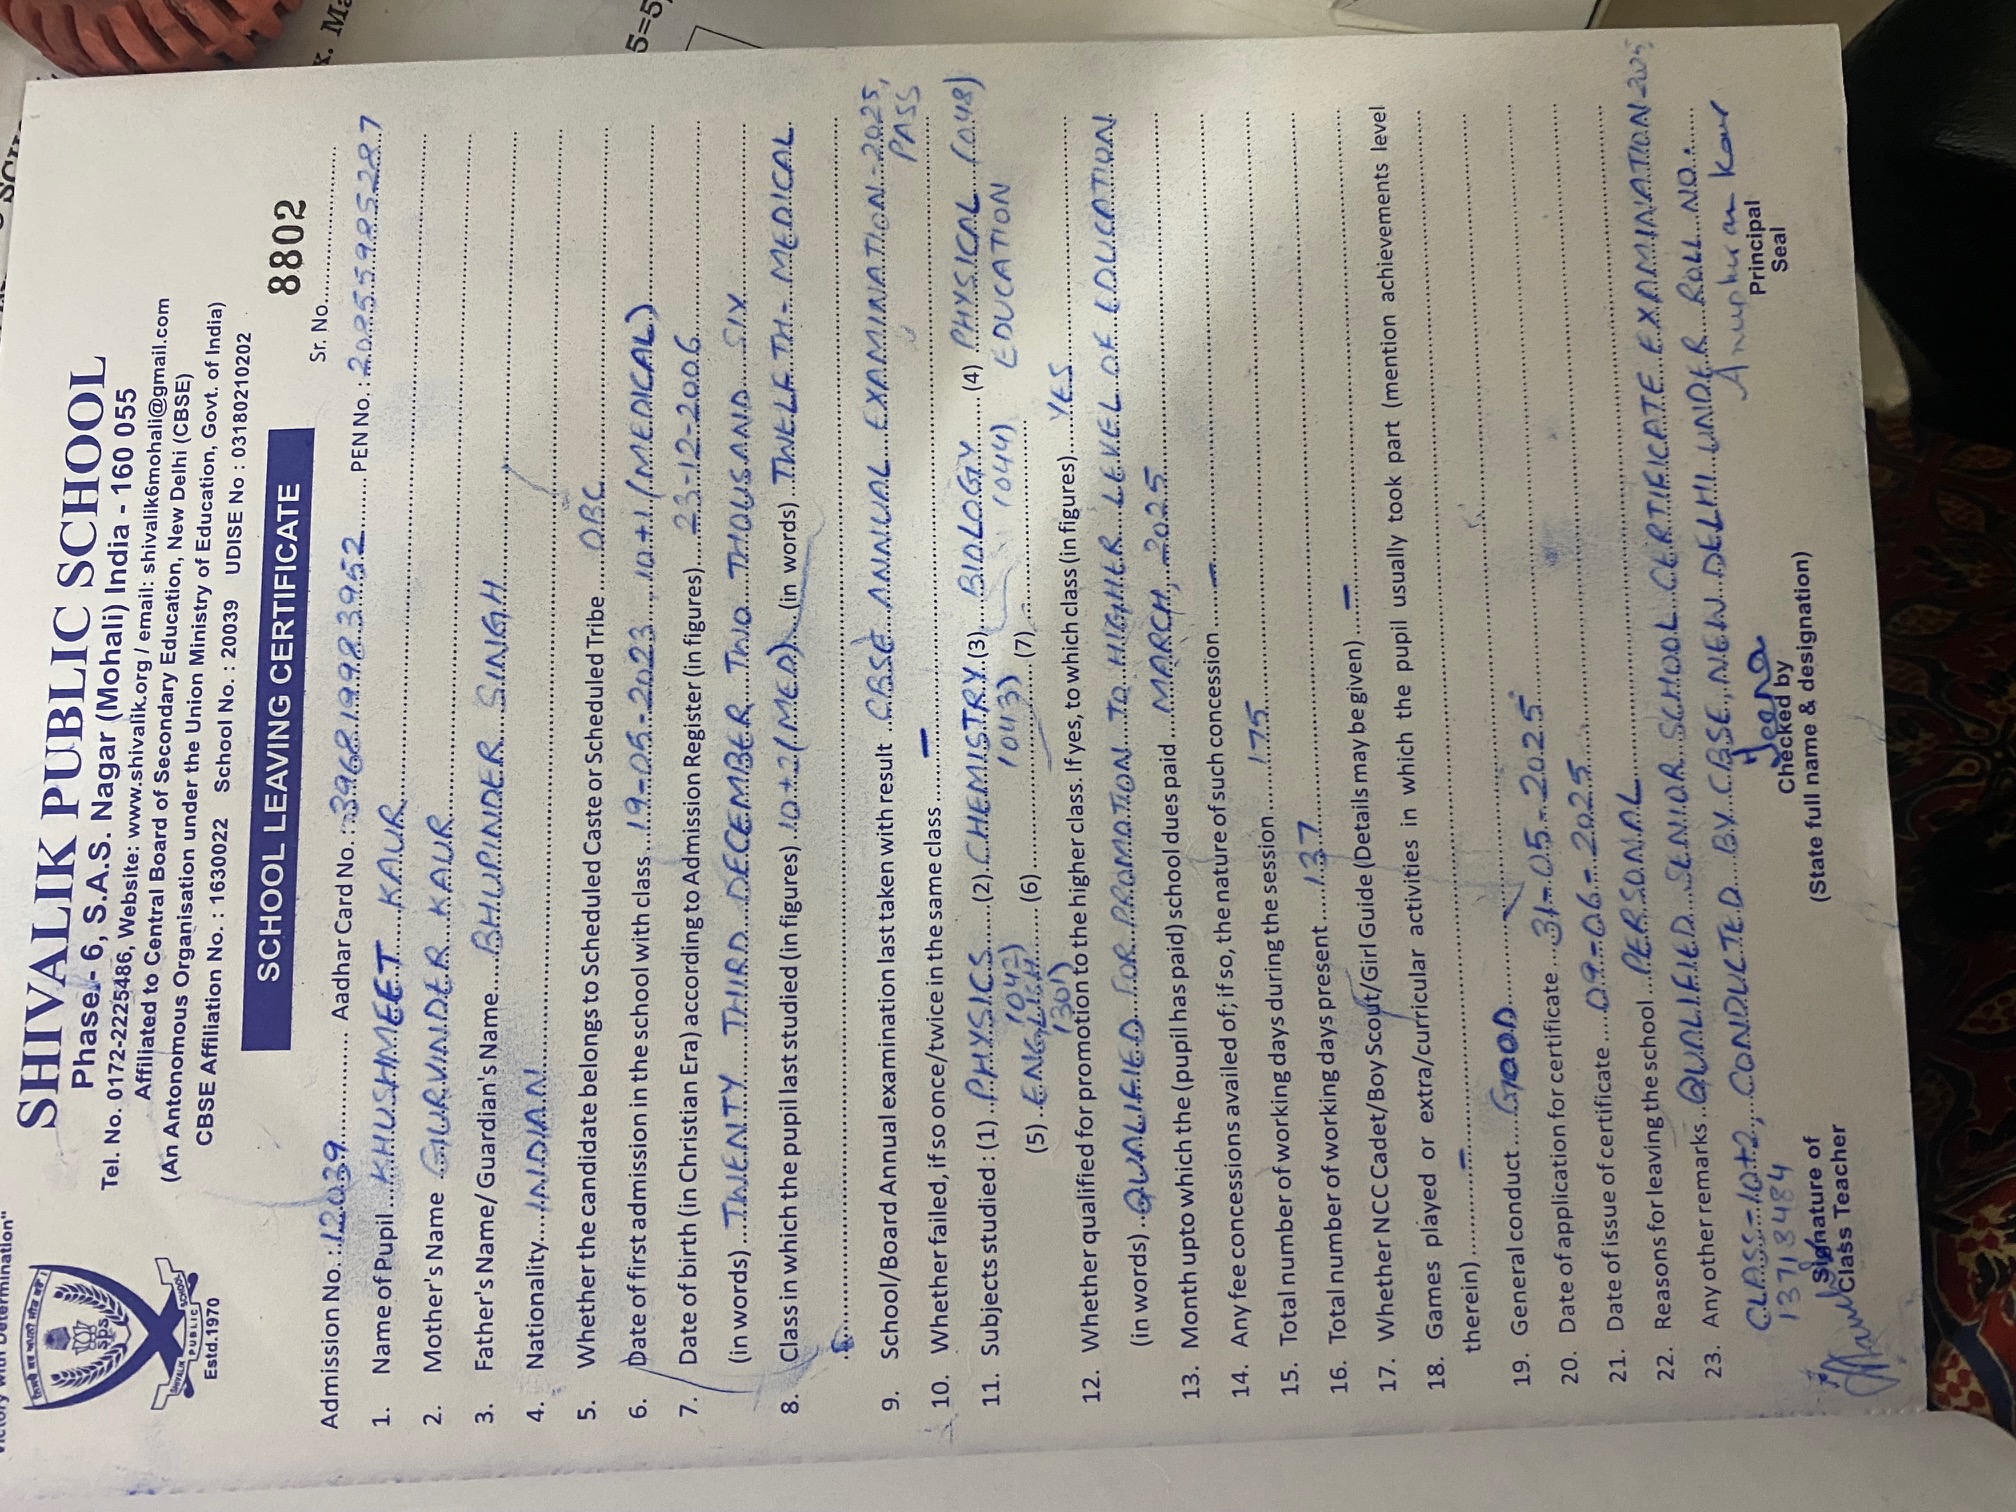 Victory with Determination"
SPS
SHIVALIK PUBLIC SCHOOL
Estd.1970
SHIVALIK PUBLIC SCHOOL
Phase - 6, S.A.S. Nagar (Mohali) India - 160 055
Tel. No. 0172-2225486, Website: www.shivalik.org / email: shivalik6mohali@gmail.com
Affiliated to Central Board of Secondary Education, New Delhi (CBSE)
(An Antonomous Organisation under the Union Ministry of Education, Govt. of India)
CBSE Affiliation No. : 1630022 School No. : 20039 UDISE No : 03180210202
SCHOOL LEAVING CERTIFICATE
8802
Sr. No.
Admission No. : 12039 Aadhar Card No. : 396819983952 PEN No. : 20855985287
1. Name of Pupil KHUSHMEET KAUR
2. Mother's Name GURVINDER KAUR
3. Father's Name/ Guardian's Name BHUPINDER SINGH
4. Nationality INDIAN
5. Whether the candidate belongs to Scheduled Caste or Scheduled Tribe OBC
6. Date of first admission in the school with class 19-05-2023 10+1 (MEDICAL)
7. Date of birth (in Christian Era) according to Admission Register (in figures) 23-12-2006
(in words) TWENTY THIRD DECEMBER TWO THOUSAND SIX
8. Class in which the pupil last studied (in figures) 10+2 (MED) (in words) TWELFTH - MEDICAL
9. School/Board Annual examination last taken with result CBSE ANNUAL EXAMINATION-2025,
PASS
10. Whether failed, if so once/twice in the same class –
11. Subjects studied : (1) PHYSICS (2) CHEMISTRY (3) BIOLOGY (4) PHYSICAL (048)
(042) (043) (044) EDUCATION
(5) ENGLISH (6) (7)
(301)
12. Whether qualified for promotion to the higher class. If yes, to which class (in figures) YES
(in words) QUALIFIED FOR PROMOTION TO HIGHER LEVEL OF EDUCATION
13. Month upto which the (pupil has paid) school dues paid MARCH, 2025
14. Any fee concessions availed of; if so, the nature of such concession –
15. Total number of working days during the session 175
16. Total number of working days present 137
17. Whether NCC Cadet/Boy Scout/Girl Guide (Details may be given) –
18. Games played or extra/curricular activities in which the pupil usually took part (mention achievements level
therein) –
19. General conduct GOOD
20. Date of application for certificate 31-05-2025
21. Date of issue of certificate 09-06-2025
22. Reasons for leaving the school PERSONAL
23. Any other remarks QUALIFIED SENIOR SCHOOL CERTIFICATE EXAMINATION-2025
CLASS-10+2, CONDUCTED BY CBSE, NEW DELHI UNDER ROLL NO.
13713484
Anuphran Kaur
Signature of
Class Teacher
Checked by
(State full name & designation)
Principal
Seal